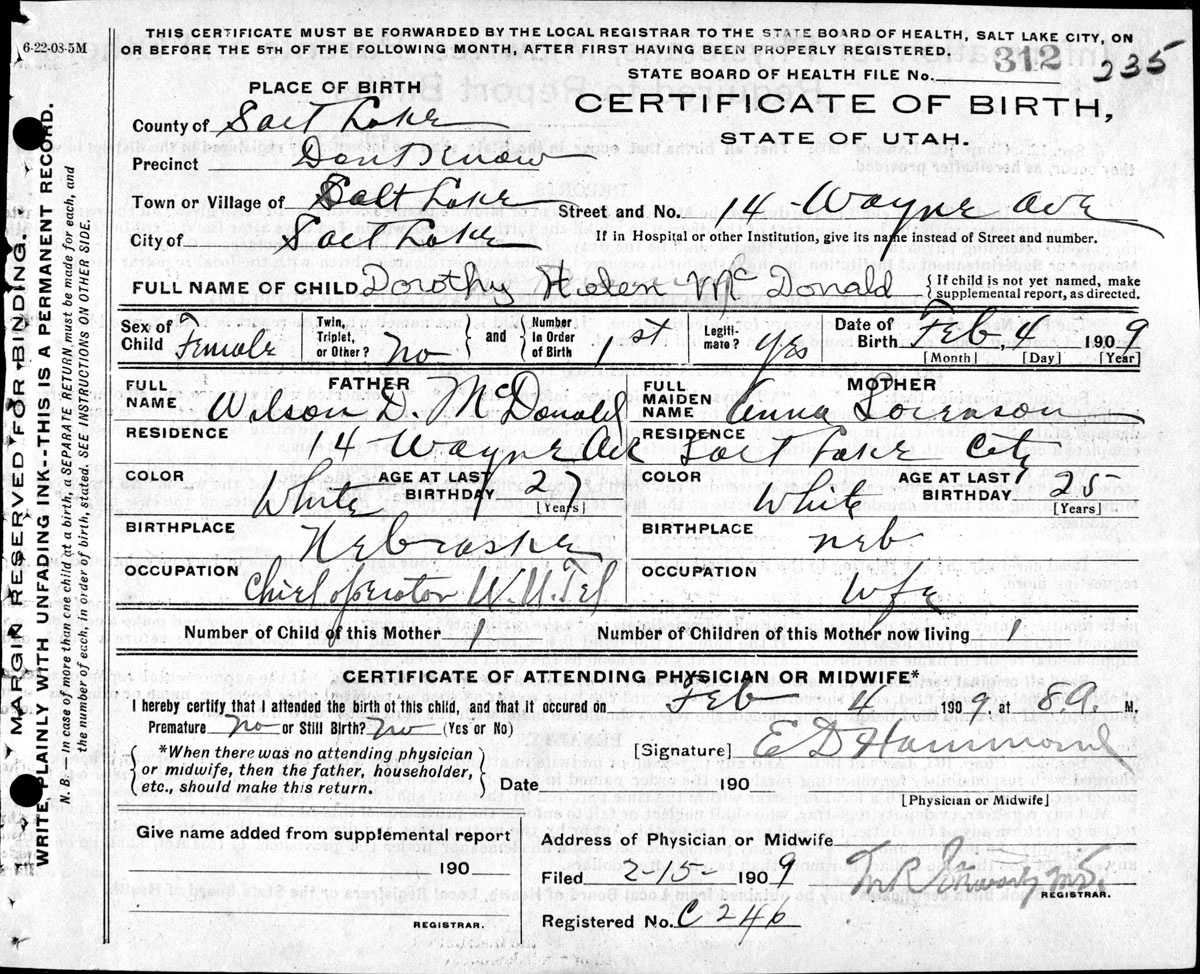 6-22-08-5M
THIS CERTIFICATE MUST BE FORWARDED BY THE LOCAL REGISTRAR TO THE STATE BOARD OF HEALTH, SALT LAKE CITY, ON
OR BEFORE THE 5TH OF THE FOLLOWING MONTH, AFTER FIRST HAVING BEEN PROPERLY REGISTERED.
STATE BOARD OF HEALTH FILE No. 312 235
PLACE OF BIRTH
CERTIFICATE OF BIRTH,
STATE OF UTAH.
County of Salt Lake
Precinct Dont Know
Town or Village of Salt Lake Street and No. 14 Wayne Ave
City of Salt Lake If in Hospital or other Institution, give its name instead of Street and number.
FULL NAME OF CHILD Dorothy Helen McDonald { If child is not yet named, make
supplemental report, as directed.
Sex of Child Female Twin, Triplet, or Other? No } and { Number in Order of Birth 1st Legiti-mate? Yes Date of Birth Feb 4 1909
[Month] [Day] [Year]
FATHER MOTHER
FULL NAME Wilson D. McDonald FULL MAIDEN NAME Anna Sorenson
RESIDENCE 14 Wayne Ave RESIDENCE Salt Lake City
COLOR White AGE AT LAST BIRTHDAY 27 [Years] COLOR White AGE AT LAST BIRTHDAY 25 [Years]
BIRTHPLACE Nebraska BIRTHPLACE Neb
OCCUPATION Chief operator W.U. Tel OCCUPATION Wfe
Number of Child of this Mother 1 Number of Children of this Mother now living 1
CERTIFICATE OF ATTENDING PHYSICIAN OR MIDWIFE*
I hereby certify that I attended the birth of this child, and that it occured on Feb 4 1909, at 8 A. M.
Premature No or Still Birth? No (Yes or No)
{ *When there was no attending physician
or midwife, then the father, householder,
etc., should make this return. }
[Signature] E D Hammond
Date 190
[Physician or Midwife]
Give name added from supplemental report
190
REGISTRAR.
Address of Physician or Midwife
Filed 2-15- 1909
REGISTRAR.
Registered No. C 246
MARGIN RESERVED FOR BINDING.
WRITE PLAINLY WITH UNFADING INK--THIS IS A PERMANENT RECORD.
N. B.—In case of more than one child at a birth, a SEPARATE RETURN must be made for each, and
the number of each, in order of birth, stated. SEE INSTRUCTIONS ON OTHER SIDE.